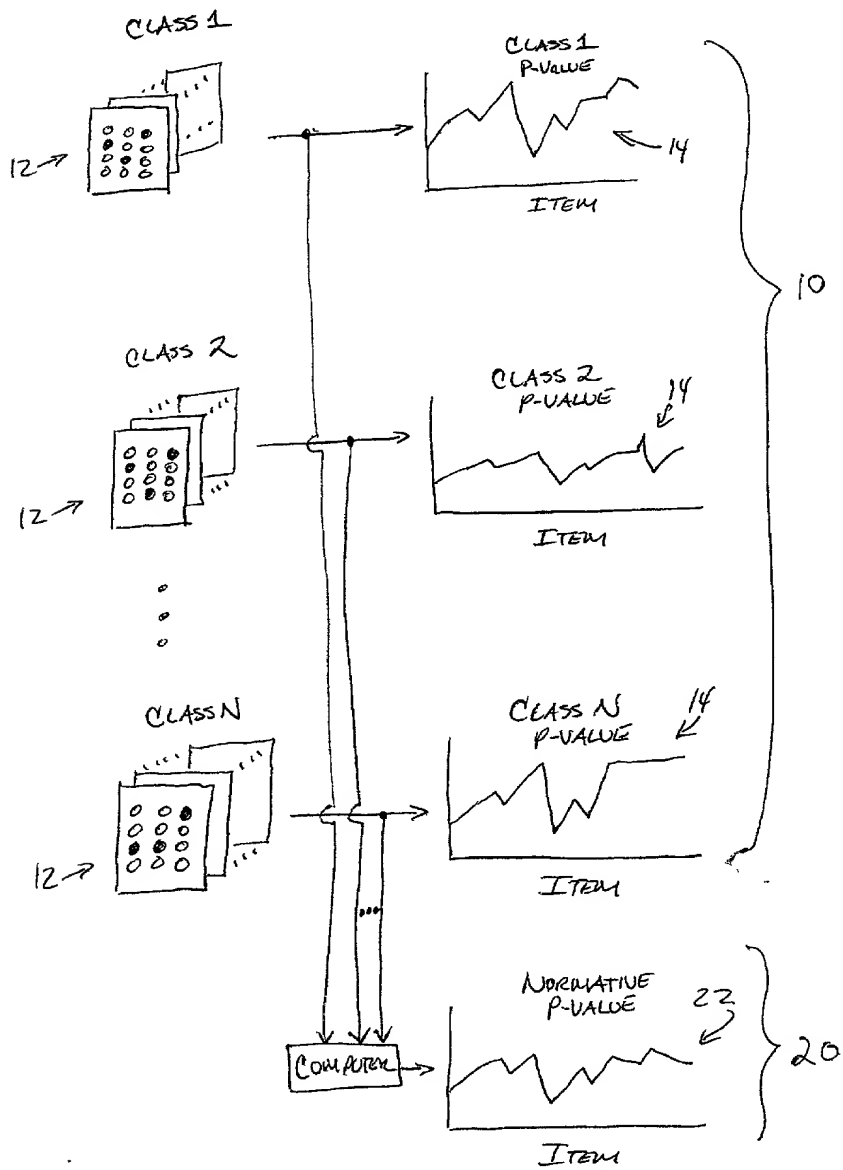 CLASS 1
12
CLASS 1
P-VALUE
14
ITEM
10
CLASS 2
12
CLASS 2
P-VALUE
14
ITEM
CLASS N
12
CLASS N
P-VALUE
14
ITEM
COMPUTER
NORMATIVE
P-VALUE
22
20
ITEM